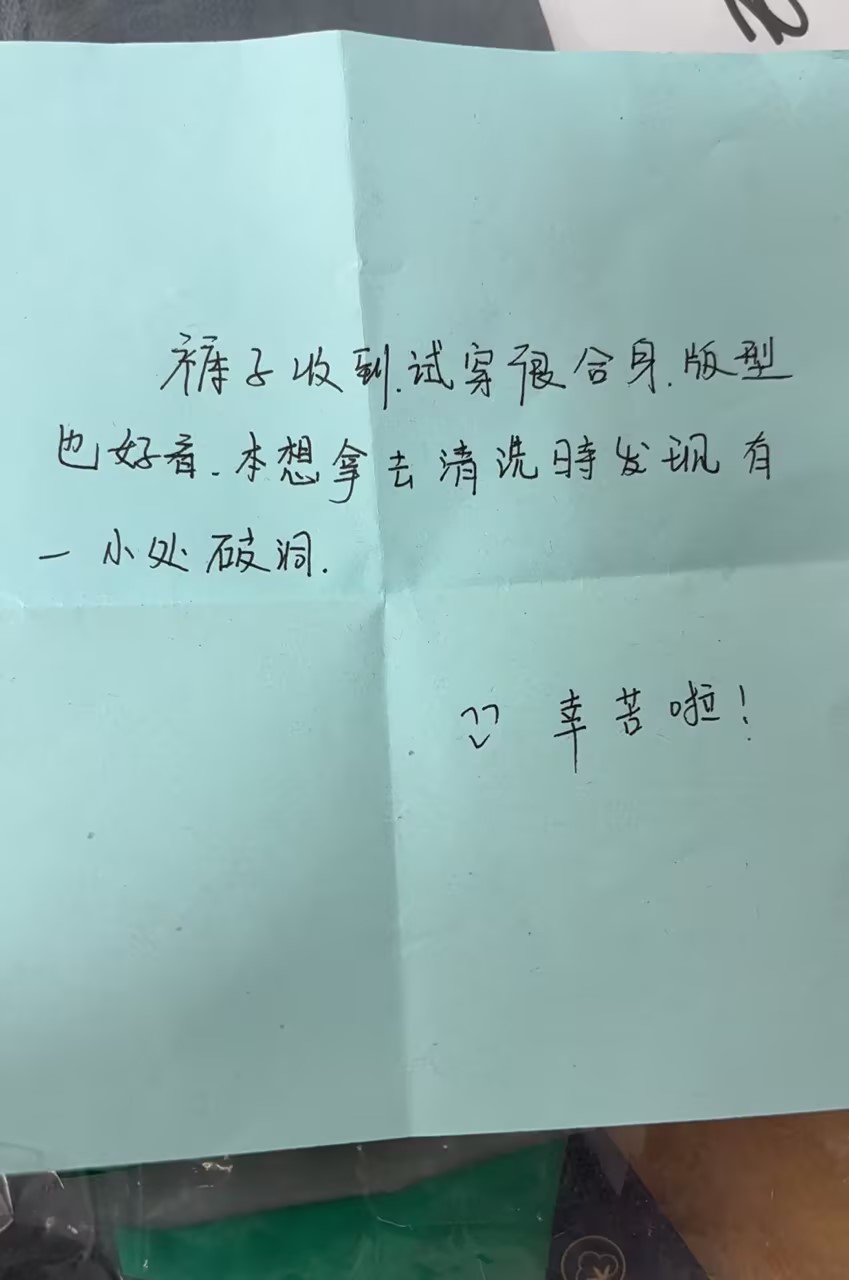 裤子收到.试穿很合身.版型
也好看.本想拿去清洗时发现有
一小处破洞.
辛苦啦!